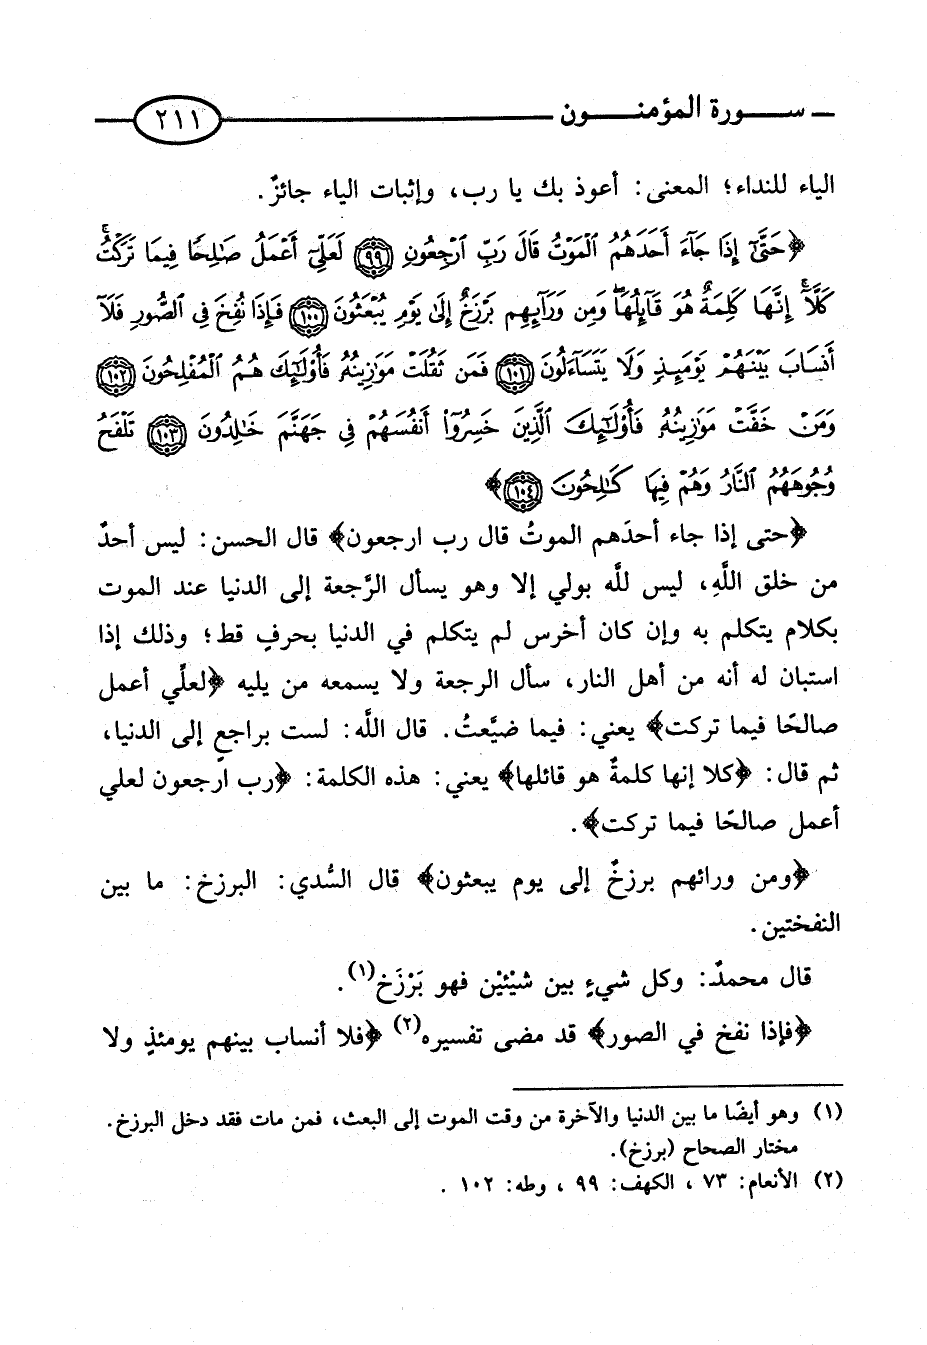 سورة المؤمنون ٢١١
الياء للنداء؛ المعنى: أعوذ بك يا رب، وإثبات الياء جائزٌ.
﴿حَتَّىٰٓ إِذَا جَآءَ أَحَدَهُمُ ٱلْمَوْتُ قَالَ رَبِّ ٱرْجِعُونِ ۝٩٩ لَعَلِّىٓ أَعْمَلُ صَٰلِحًا فِيمَا تَرَكْتُ ۚ
كَلَّآ ۚ إِنَّهَا كَلِمَةٌ هُوَ قَآئِلُهَا ۖ وَمِن وَرَآئِهِم بَرْزَخٌ إِلَىٰ يَوْمِ يُبْعَثُونَ ۝١٠٠ فَإِذَا نُفِخَ فِى ٱلصُّورِ فَلَآ
أَنسَابَ بَيْنَهُمْ يَوْمَئِذٍ وَلَا يَتَسَآءَلُونَ ۝١٠١ فَمَن ثَقُلَتْ مَوَٰزِينُهُۥ فَأُو۟لَٰٓئِكَ هُمُ ٱلْمُفْلِحُونَ ۝١٠٢
وَمَنْ خَفَّتْ مَوَٰزِينُهُۥ فَأُو۟لَٰٓئِكَ ٱلَّذِينَ خَسِرُوٓا۟ أَنفُسَهُمْ فِى جَهَنَّمَ خَٰلِدُونَ ۝١٠٣ تَلْفَحُ
وُجُوهَهُمُ ٱلنَّارُ وَهُمْ فِيهَا كَٰلِحُونَ ۝١٠٤﴾
﴿حتى إذا جاء أحدَهم الموتُ قال رب ارجعون﴾ قال الحسن: ليس أحدٌ
من خلق اللَّهِ، ليس للَّه بولي إلا وهو يسأل الرَّجعة إلى الدنيا عند الموت
بكلام يتكلم به وإن كان أخرس لم يتكلم في الدنيا بحرفٍ قط؛ وذلك إذا
استبان له أنه من أهل النار، سأل الرجعة ولا يسمعه من يليه ﴿لعلِّي أعمل
صالحًا فيما تركت﴾ يعني: فيما ضيَّعتُ. قال اللَّه: لست براجعٍ إلى الدنيا،
ثم قال: ﴿كلا إنها كلمةٌ هو قائلها﴾ يعني: هذه الكلمة: ﴿رب ارجعون لعلي
أعمل صالحًا فيما تركت﴾.
﴿ومن ورائهم برزخٌ إلى يوم يبعثون﴾ قال السُّدي: البرزخ: ما بين
النفختين.
قال محمدٌ: وكل شيءٍ بين شيْئيْن فهو بَرْزَخ(١).
﴿فإذا نفخ في الصور﴾ قد مضى تفسيره(٢) ﴿فلا أنساب بينهم يومئذٍ ولا
(١) وهو أيضًا ما بين الدنيا والآخرة من وقت الموت إلى البعث، فمن مات فقد دخل البرزخ.
مختار الصحاح (برزخ).
(٢) الأنعام: ٧٣ ، الكهف: ٩٩ ، وطه: ١٠٢ .